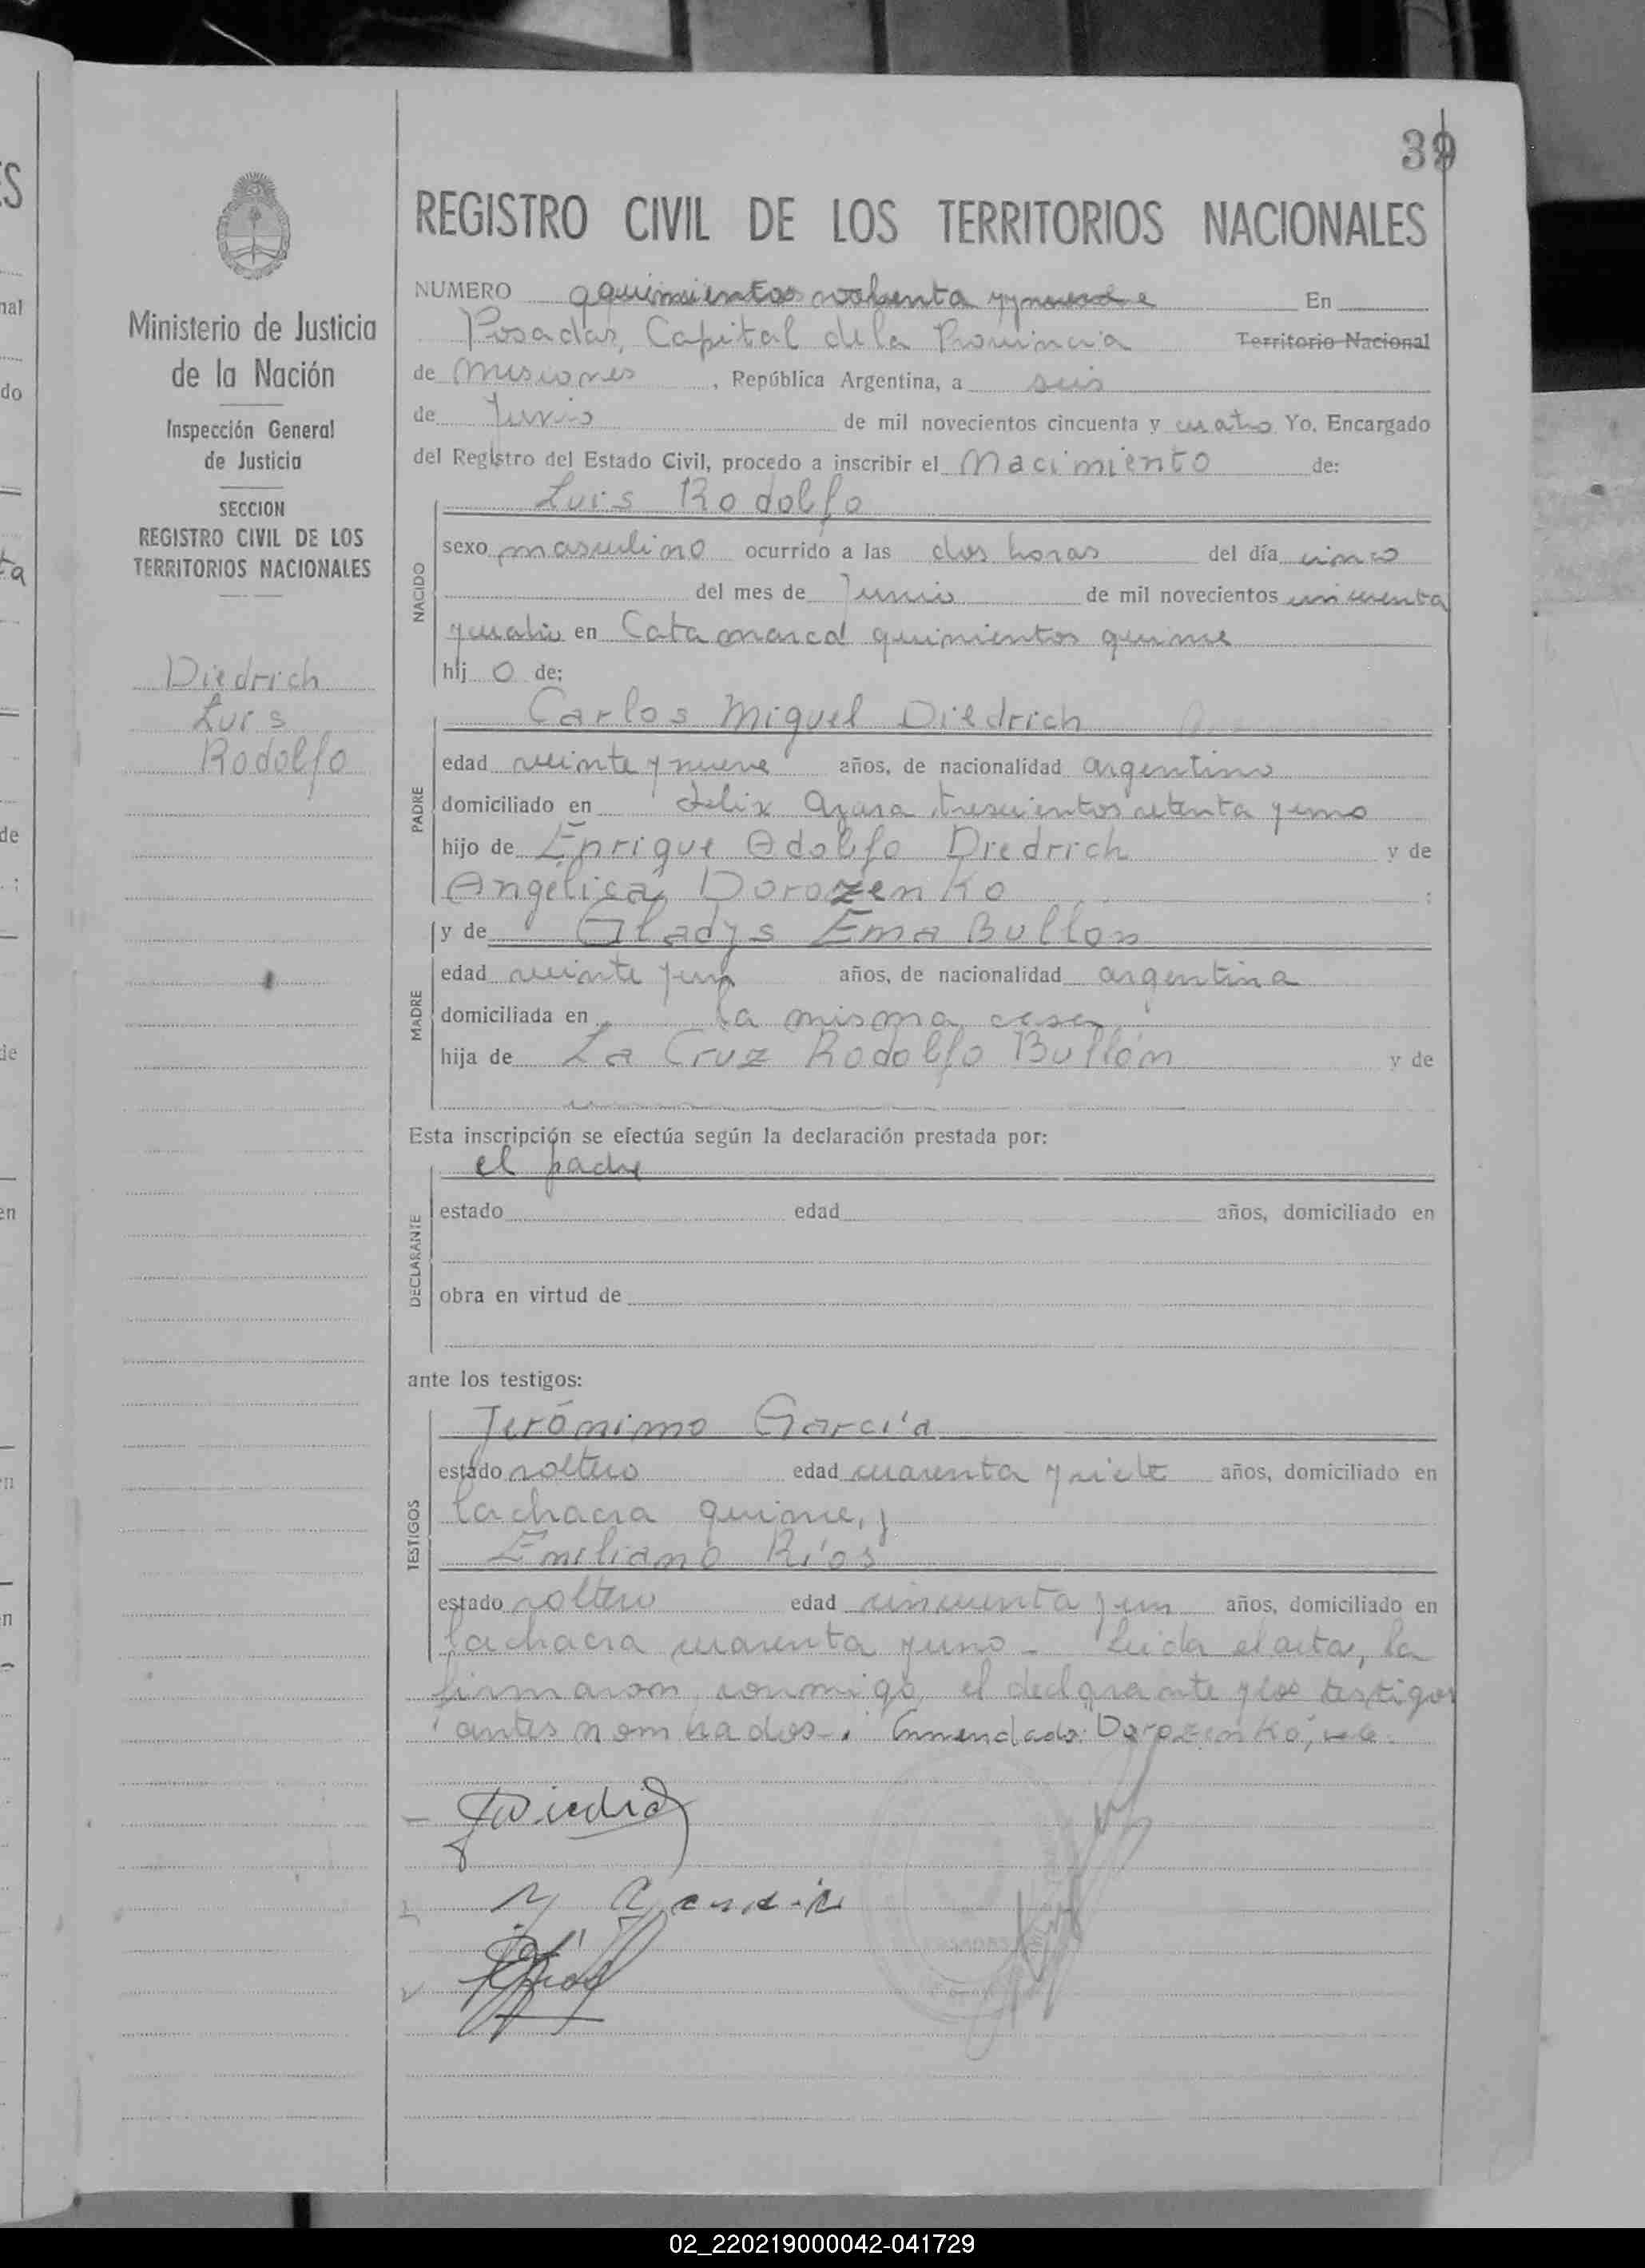 39
REGISTRO CIVIL DE LOS TERRITORIOS NACIONALES
Ministerio de Justicia
de la Nación
Inspección General
de Justicia
SECCION
REGISTRO CIVIL DE LOS
TERRITORIOS NACIONALES
Diedrich
Luis
Rodolfo
NUMERO quinientos y En
Posadas, Capital de la Provincia Territorio Nacional
de Misiones, República Argentina, a seis
de Junio de mil novecientos cincuenta y cuatro Yo, Encargado
del Registro del Estado Civil, procedo a inscribir el Nacimiento de:
Luis Rodolfo
NACIDO
sexo masculino ocurrido a las dos horas del día cinco
del mes de Junio de mil novecientos cincuenta
y cuatro en Catamarca quinientos quince
hij o de:
PADRE
Carlos Miguel Diedrich
edad veinte y nueve años, de nacionalidad argentino
domiciliado en Felix Azara trescientos setenta y uno
hijo de Enrique Adolfo Diedrich y de
Angélica Dorozenko :
MADRE
y de Gladys Ema Bullón
edad veinte y un años, de nacionalidad argentina
domiciliada en la misma casa
hija de La Cruz Rodolfo Bullón y de
Esta inscripción se efectúa según la declaración prestada por:
DECLARANTE
el padre
estado edad años, domiciliado en
obra en virtud de
ante los testigos:
TESTIGOS
Jerónimo García
estado soltero edad cuarenta y siete años, domiciliado en
la chacra quince, y
Emiliano Ríos
estado soltero edad cincuenta y un años, domiciliado en
la chacra cuarenta y uno - Leida el acta, la
firmaron conmigo el declarante y los testigos
antes nombrados.- Enmendado: "Dorozenko", vale.
02_220219000042-041729